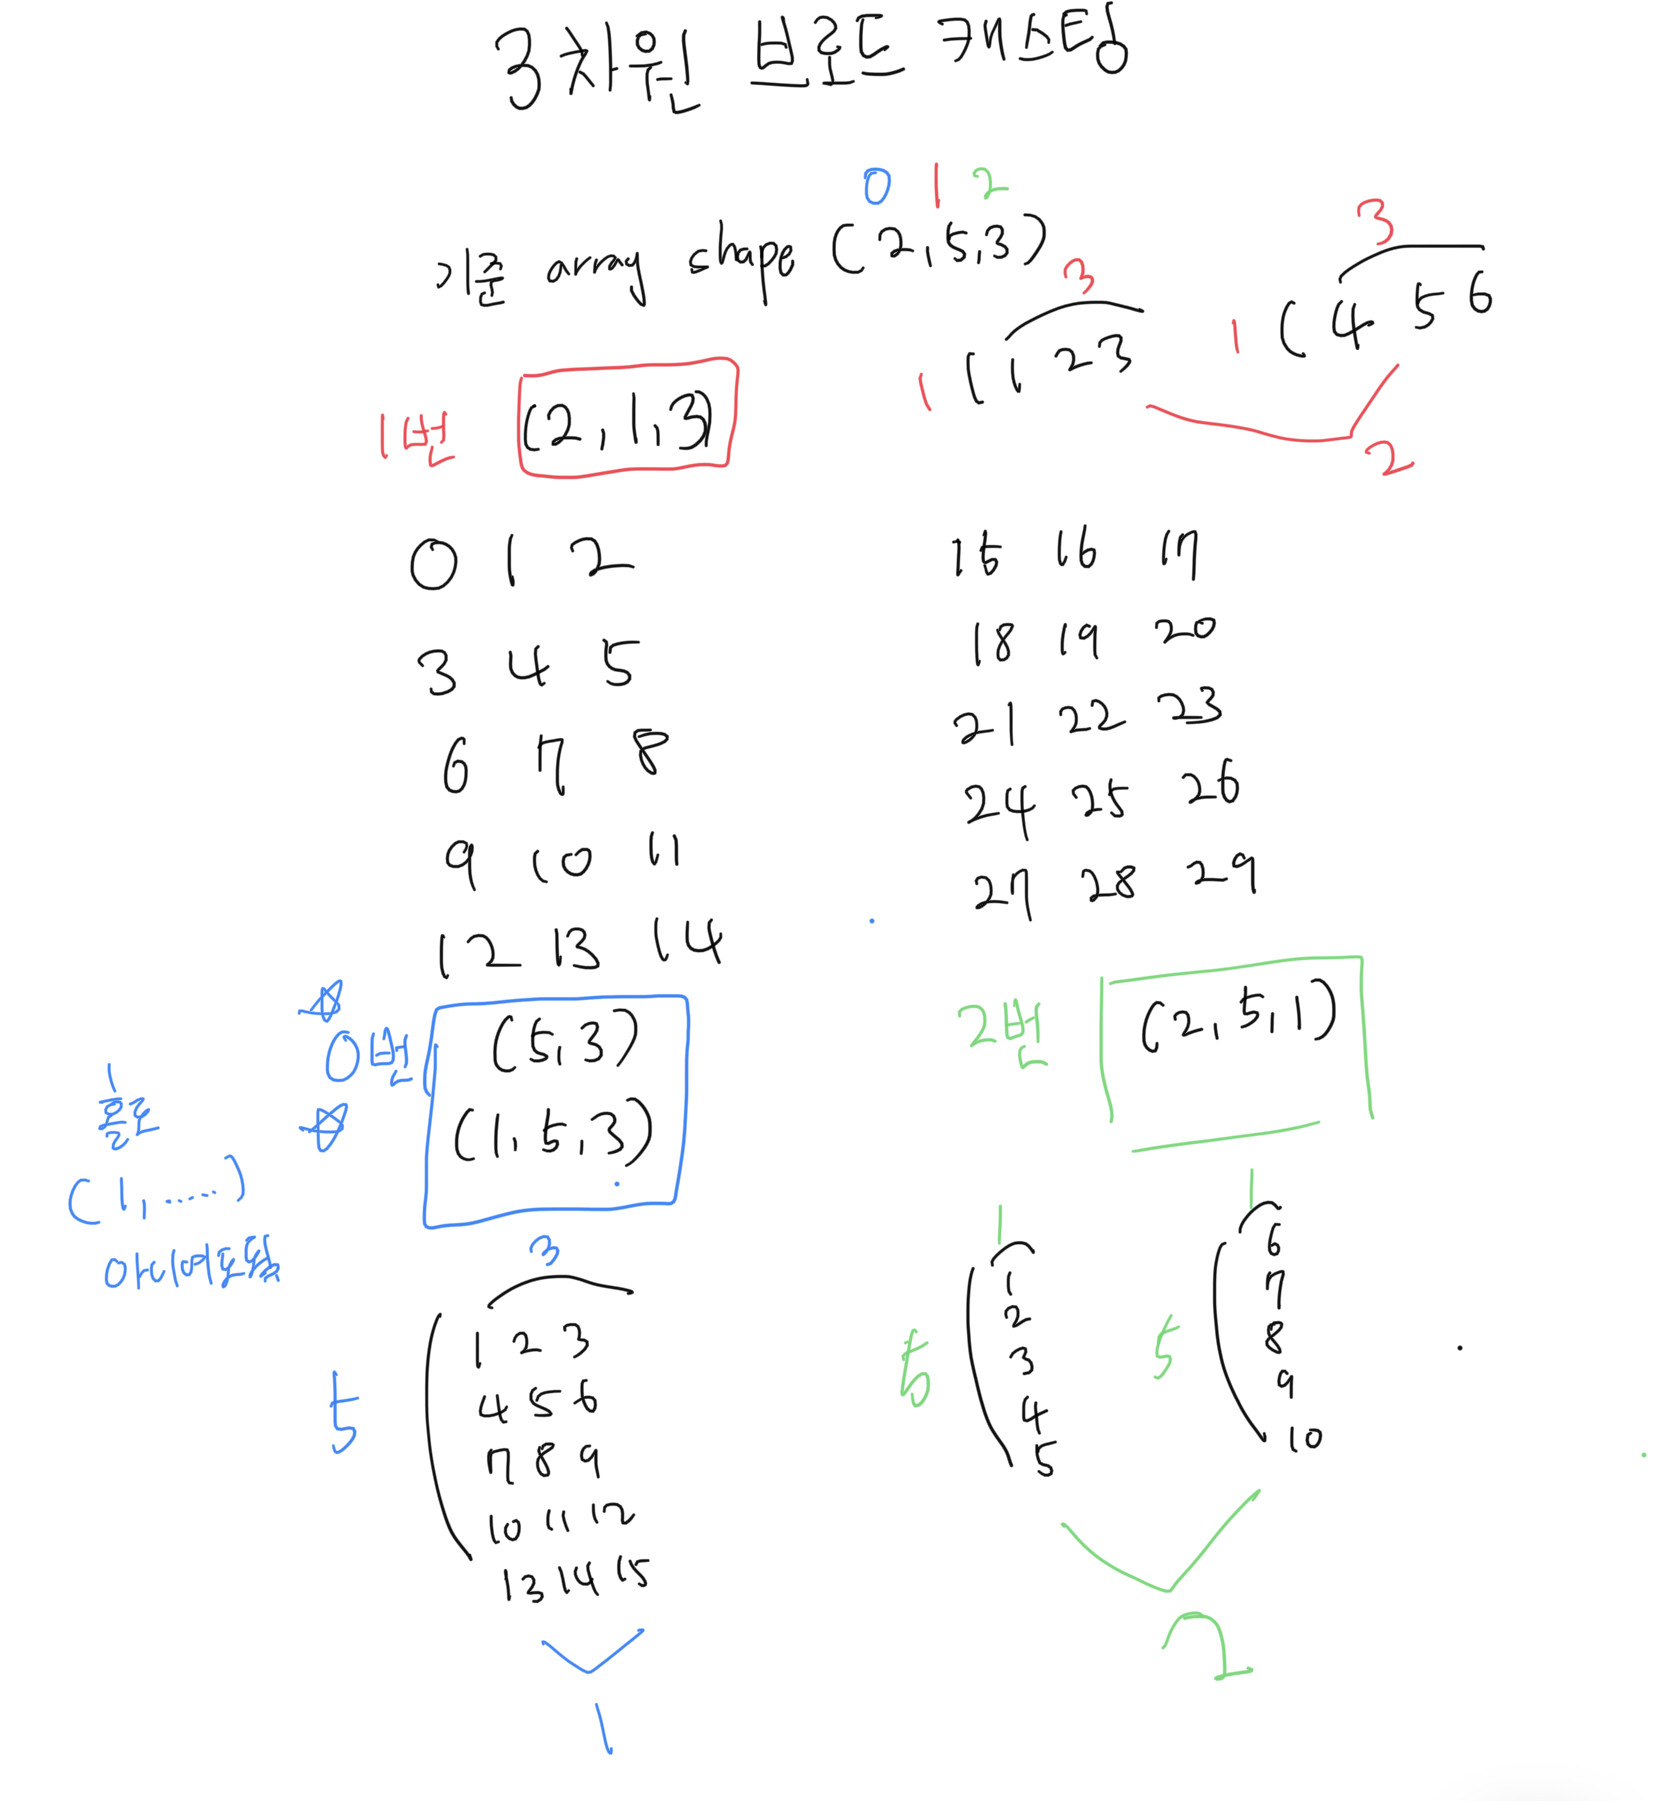 3차원 브로드 캐스팅
0 1 2
기준 array shape (2,5,3)
3
1 (1 2 3
3
1 (4 5 6
2
1번 (2,1,3)
0 1 2
3 4 5
6 7 8
9 10 11
12 13 14
15 16 17
18 19 20
21 22 23
24 25 26
27 28 29
0번 (5,3)
(1,5,3)
1
(1, ......)
아니어도됨
3
5
1 2 3
4 5 6
7 8 9
10 11 12
13 14 15
1
2번 (2,5,1)
1
5
1
2
3
4
5
1
5
6
7
8
9
10
2